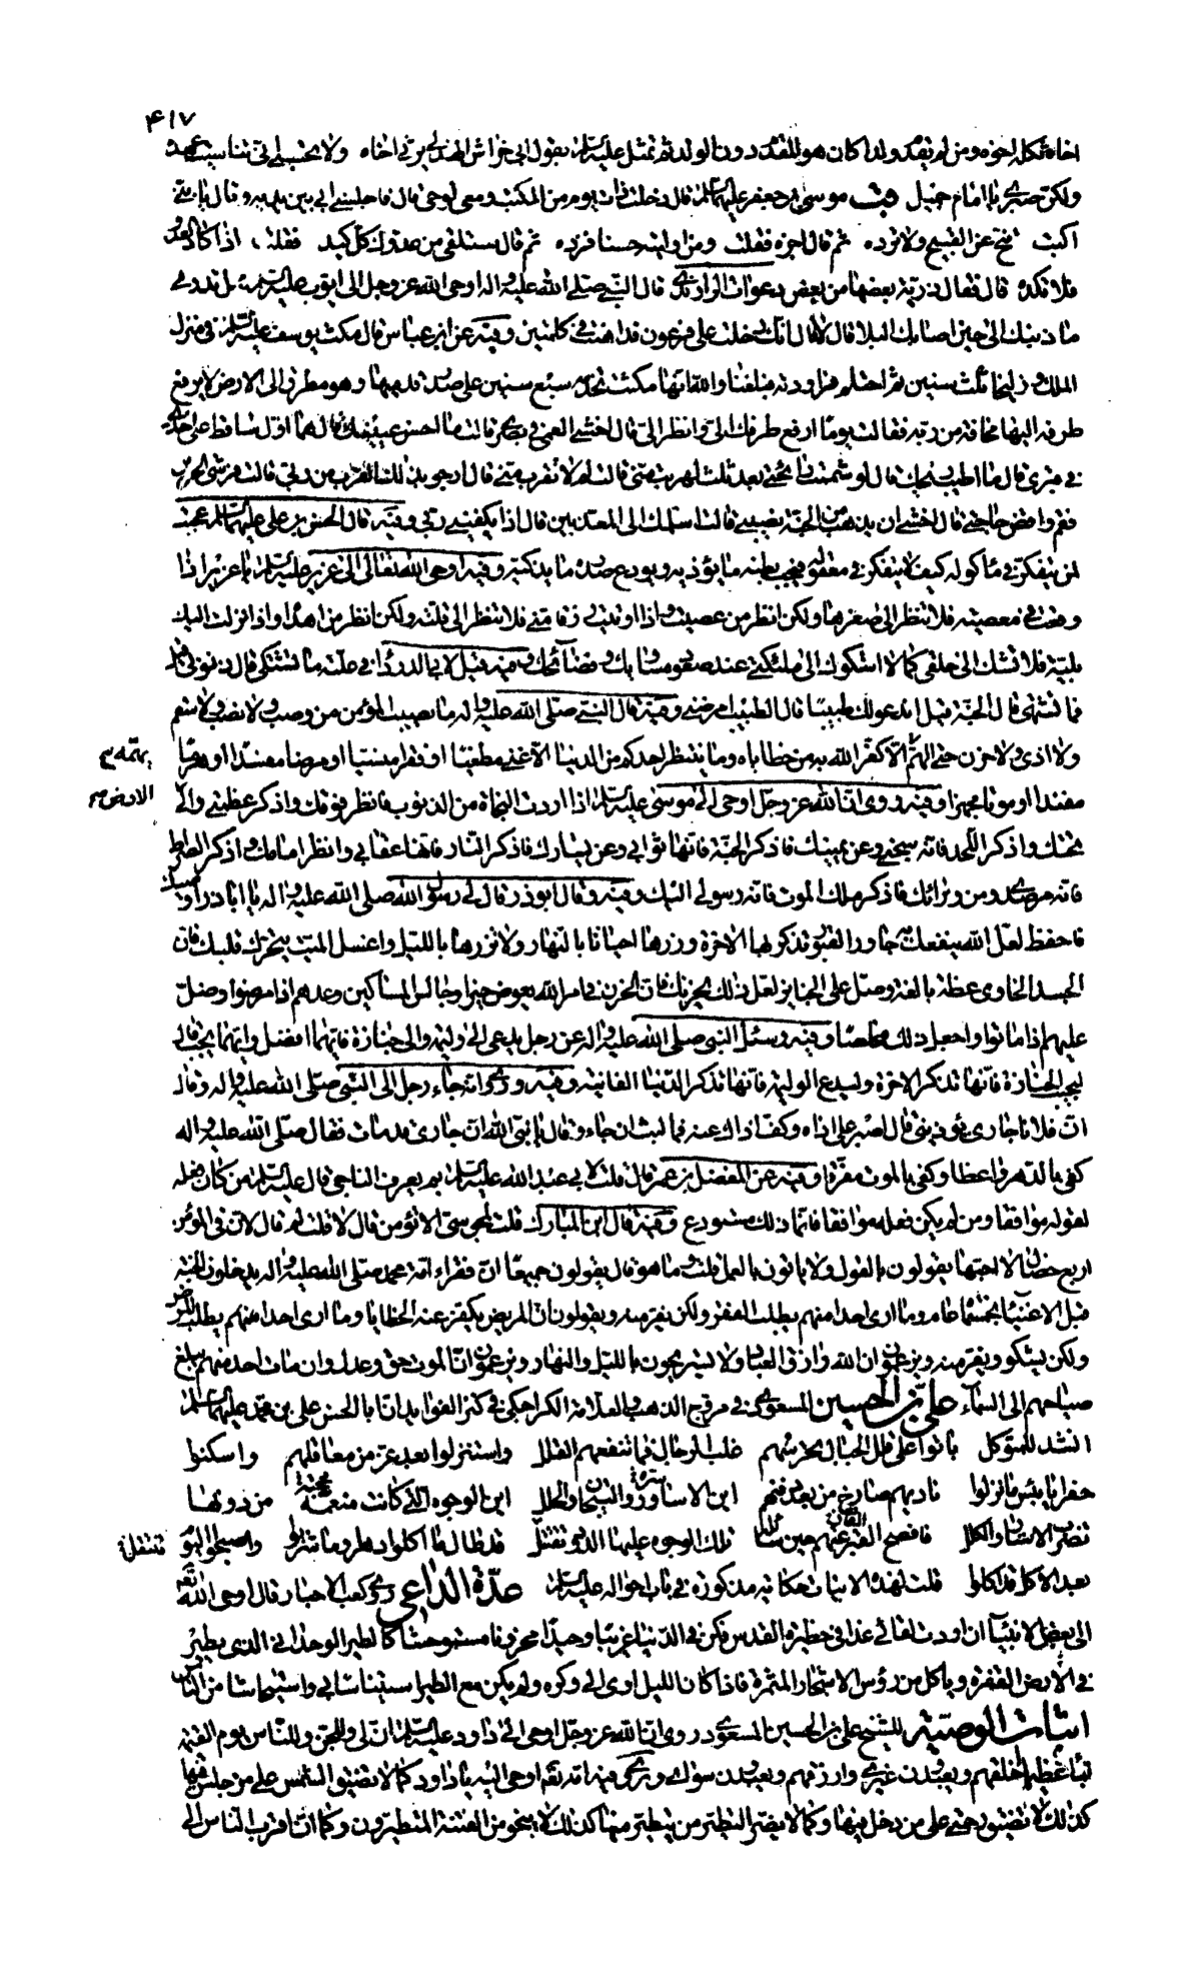 ۴۱۷
اخاه ثكله اخوه ومن لم يفقد ولدا كان هو المفقد دون الولد ثم تمثل عليه السلام بقول ابي خراش الهذلي يرثي اخاه ولا تحسبي اني تناسيت عهده
ولكن صبري يا امام جميل موسى بن جعفر عليهما السلام قال دخلت ذات يوم من المكتب ومعي لوحي قال فاجلسني ابي بين يديه وقال يا بني
اكتب تنح عن القبيح ولا ترده ثم قال اجزه فقلت ومن اوليته حسنا فزده ثم قال ستلقى من عدوك كل كيد فقلت اذا كاد العدو
فلا تكده قال فقال ذرية بعضها من بعض دعوات الراوندي قال النبي صلى الله عليه واله اوحى الله عز وجل الى ايوب عليه السلام هل تدري
ما ذنبك الي حين اصابك البلاء قال لا قال انك دخلت على فرعون فداهنت في كلمتين وفيه عن ابن عباس قال مكث يوسف عليه السلام في منزل
الملك وزليخا ثلث سنين ثم احتلم فراودته فبلغنا والله انها مكثت تخدمه سبع سنين على صدر قدميها وهو مطرق الى الارض لا يرفع
طرفه اليها مخافة من ربه فقالت يوما ارفع طرفك الي وانظر الي قال اخشى العمى في بصري قالت ما احسن عينيك قال هما اول ساقط على خدي
في قبري قال ما اطيب ريحك قال لو شممت رائحتي بعد ثلث لهربت مني قالت لم لا تقرب مني قال ارجو بذلك القرب من ربي قالت فرشي الحرير
فقم واقض حاجتي قال اخشى ان يذهب من الجنة نصيبي قالت اسلمك الى المعذبين قال اذا يكفيني ربي وفيه قال الحسن بن علي عليهما السلام عجبت
لمن يتفكر في ماكوله كيف لا يتفكر في معقوله فيجنب بطنه ما يؤذيه ويودع صدره ما يرديه وفيه اوحى الله تعالى الى عزير عليه السلام يا عزير اذا
وقعت في معصيته فلا تنظر الى صغرها ولكن انظر من عصيت واذا اوتيت رزقا مني فلا تنظر الى قلته ولكن انظر من اهداه واذا نزلت اليك
بلية فلا تشك الى خلقي كما لا اشكوك الى ملئكتي عند صعود مساويك وفضائحك وفيه قيل لابي الدرداء في علته ما تشتكي قال ذنوبي قيل
فما تشتهي قال الجنة قيل اندعو لك طبيبا قال الطبيب امرضني وفيه قال النبي صلى الله عليه واله ما يصيب المؤمن من وصب ولا نصب ولا سقم
ولا اذى ولا حزن حتى الهم الا كفر الله به من خطاياه وما ينتظر احدكم من الدنيا الا غنى مطغيا او فقرا منسيا او مرضا مفسدا او هرما
يهمه
مفندا او موتا مجهزا وفيه وروي ان الله عز وجل اوحى الى موسى عليه السلام اذا اردت النجاة من الذنوب فانظر فوقك واذكر عظمتي والى
الارض
تحتك واذكر اللحد فانه سجني وعن يمينك فاذكر الجنة فانها ثوابي وعن يسارك فاذكر النار فانها عقابي وانظر امامك واذكر الصراط
فانه مرصدي ومن ورائك فاذكر ملك الموت فانه رسولي اليك وفيه وقال ابوذر قال لي رسول الله صلى الله عليه واله يا اباذر اوصيك
فاحفظ لعل الله ينفعك به جاور القبور تذكر بها الاخرة وزرها احيانا بالنهار ولا تزرها بالليل واغسل الميت يتحرك قلبك فان
الجسد الخاوي عظة بالغة وصل على الجنايز لعل ذلك يحزنك فان الحزين في امر الله يعوض خيرا وجالس المساكين وعدهم اذا مرضوا وصل
عليهم اذا ماتوا واجعل ذلك مخلصا وفيه وسئل النبي صلى الله عليه واله عن رجل يدعى الى وليمة والى جنازة فايهما افضل وايهما يجب قال
ليجب الجنازة فانها تذكر الاخرة وليدع الوليمة فانها تذكر الدنيا الفانية وفيه وروي انه جاء رجل الى النبي صلى الله عليه واله وقال
ان فلانا جاري يؤذيني قال اصبر على اذاه وكف اذاك عنه فما لبث ان جاء وقال يا نبي الله ان جاري قد مات فقال صلى الله عليه واله
كفى بالدهر واعظا وكفى بالموت مفرقا وفيه عن المفضل بن عمر قال قلت لابي عبد الله عليه السلام بم يعرف الناجي قال عليه السلام من كان فعله
لقوله موافقا ومن لم يكن فعله موافقا فانما ذلك مستودع وفيه قال ابن المبارك قلت لمجوسي الا تؤمن قال لا قلت لم قال لان في المؤمنين
اربع خصال لا احبها يقولون بالقول ولا ياتون بالعمل قلت وما هو قال يقولون جميعا ان فقراء امة محمد صلى الله عليه واله يدخلون الجنة
قبل الاغنياء بخمسمائة عام وما ارى احدا منهم يطلب الفقر ولكن يفر منه ويقولون ان المريض يكفر عنه الخطايا وما ارى احدا منهم يطلب المرض
ولكن يشكو ويفر منه ويزعمون ان الله رازق العباد ولا يستريحون بالليل والنهار ويزعمون ان الموت حق وعدل وان مات احد منهم يبلغ
صياحهم الى السماء علي بن الحسين المسعودي في مروج الذهب والعلامة الكراجكي في كنز الفوائد ان ابا الحسن علي بن محمد عليهما السلام
انشد للمتوكل باتوا على قلل الجبال تحرسهم غلب الرجال فما تنفعهم القلل واستنزلوا بعد عز من معاقلهم واسكنوا
حفرا يا بئس ما نزلوا ناداهم صارخ من بعد دفنهم اين الاساور والتيجان والحلل اين الوجوه التي كانت منعمة من دونها
تضرب الاستار والكلل فافصح القبر عنهم حين سائلهم تلك الوجوه عليها الدود تقتتل قد طال ما اكلوا دهرا وما شربوا واصبحوا اليوم
تنتقل
بعد الاكل قد اكلوا قلت لهذه الابيات حكاية مذكورة في باب احواله عليه السلام عدة الداعي روى كعب الاحبار قال اوحى الله تعالى
الى بعض الانبياء ان اردت لقائي غدا في حظيرة القدس فكن في الدنيا غريبا وحيدا محزونا مستوحشا كالطير الوحداني الذي يطير
في الارض القفرة وياكل من رؤس الاشجار المثمرة فاذا كان الليل اوى الى وكره ولم يكن مع الطير استيناسا بي واستيحاشا من الناس
اثبات الوصية للشيخ علي بن الحسين المسعودي روي ان الله عز وجل اوحى الى داود عليه السلام ان لي وللجن وللناس يوم القيمة
نبأ عظيم اخلقهم ويعبدون غيري وارزقهم ويعبدون سواي وروي فيه انه تعالى اوحى اليه يا داود كما لا تضيق الشمس على من جلس فيها
كذلك لا تضيق رحمتي على من دخل فيها وكما لا يضر التطير من يتطير منها كذلك لا ينجو من الفتنة المتطيرون وكما ان اقرب الناس الي